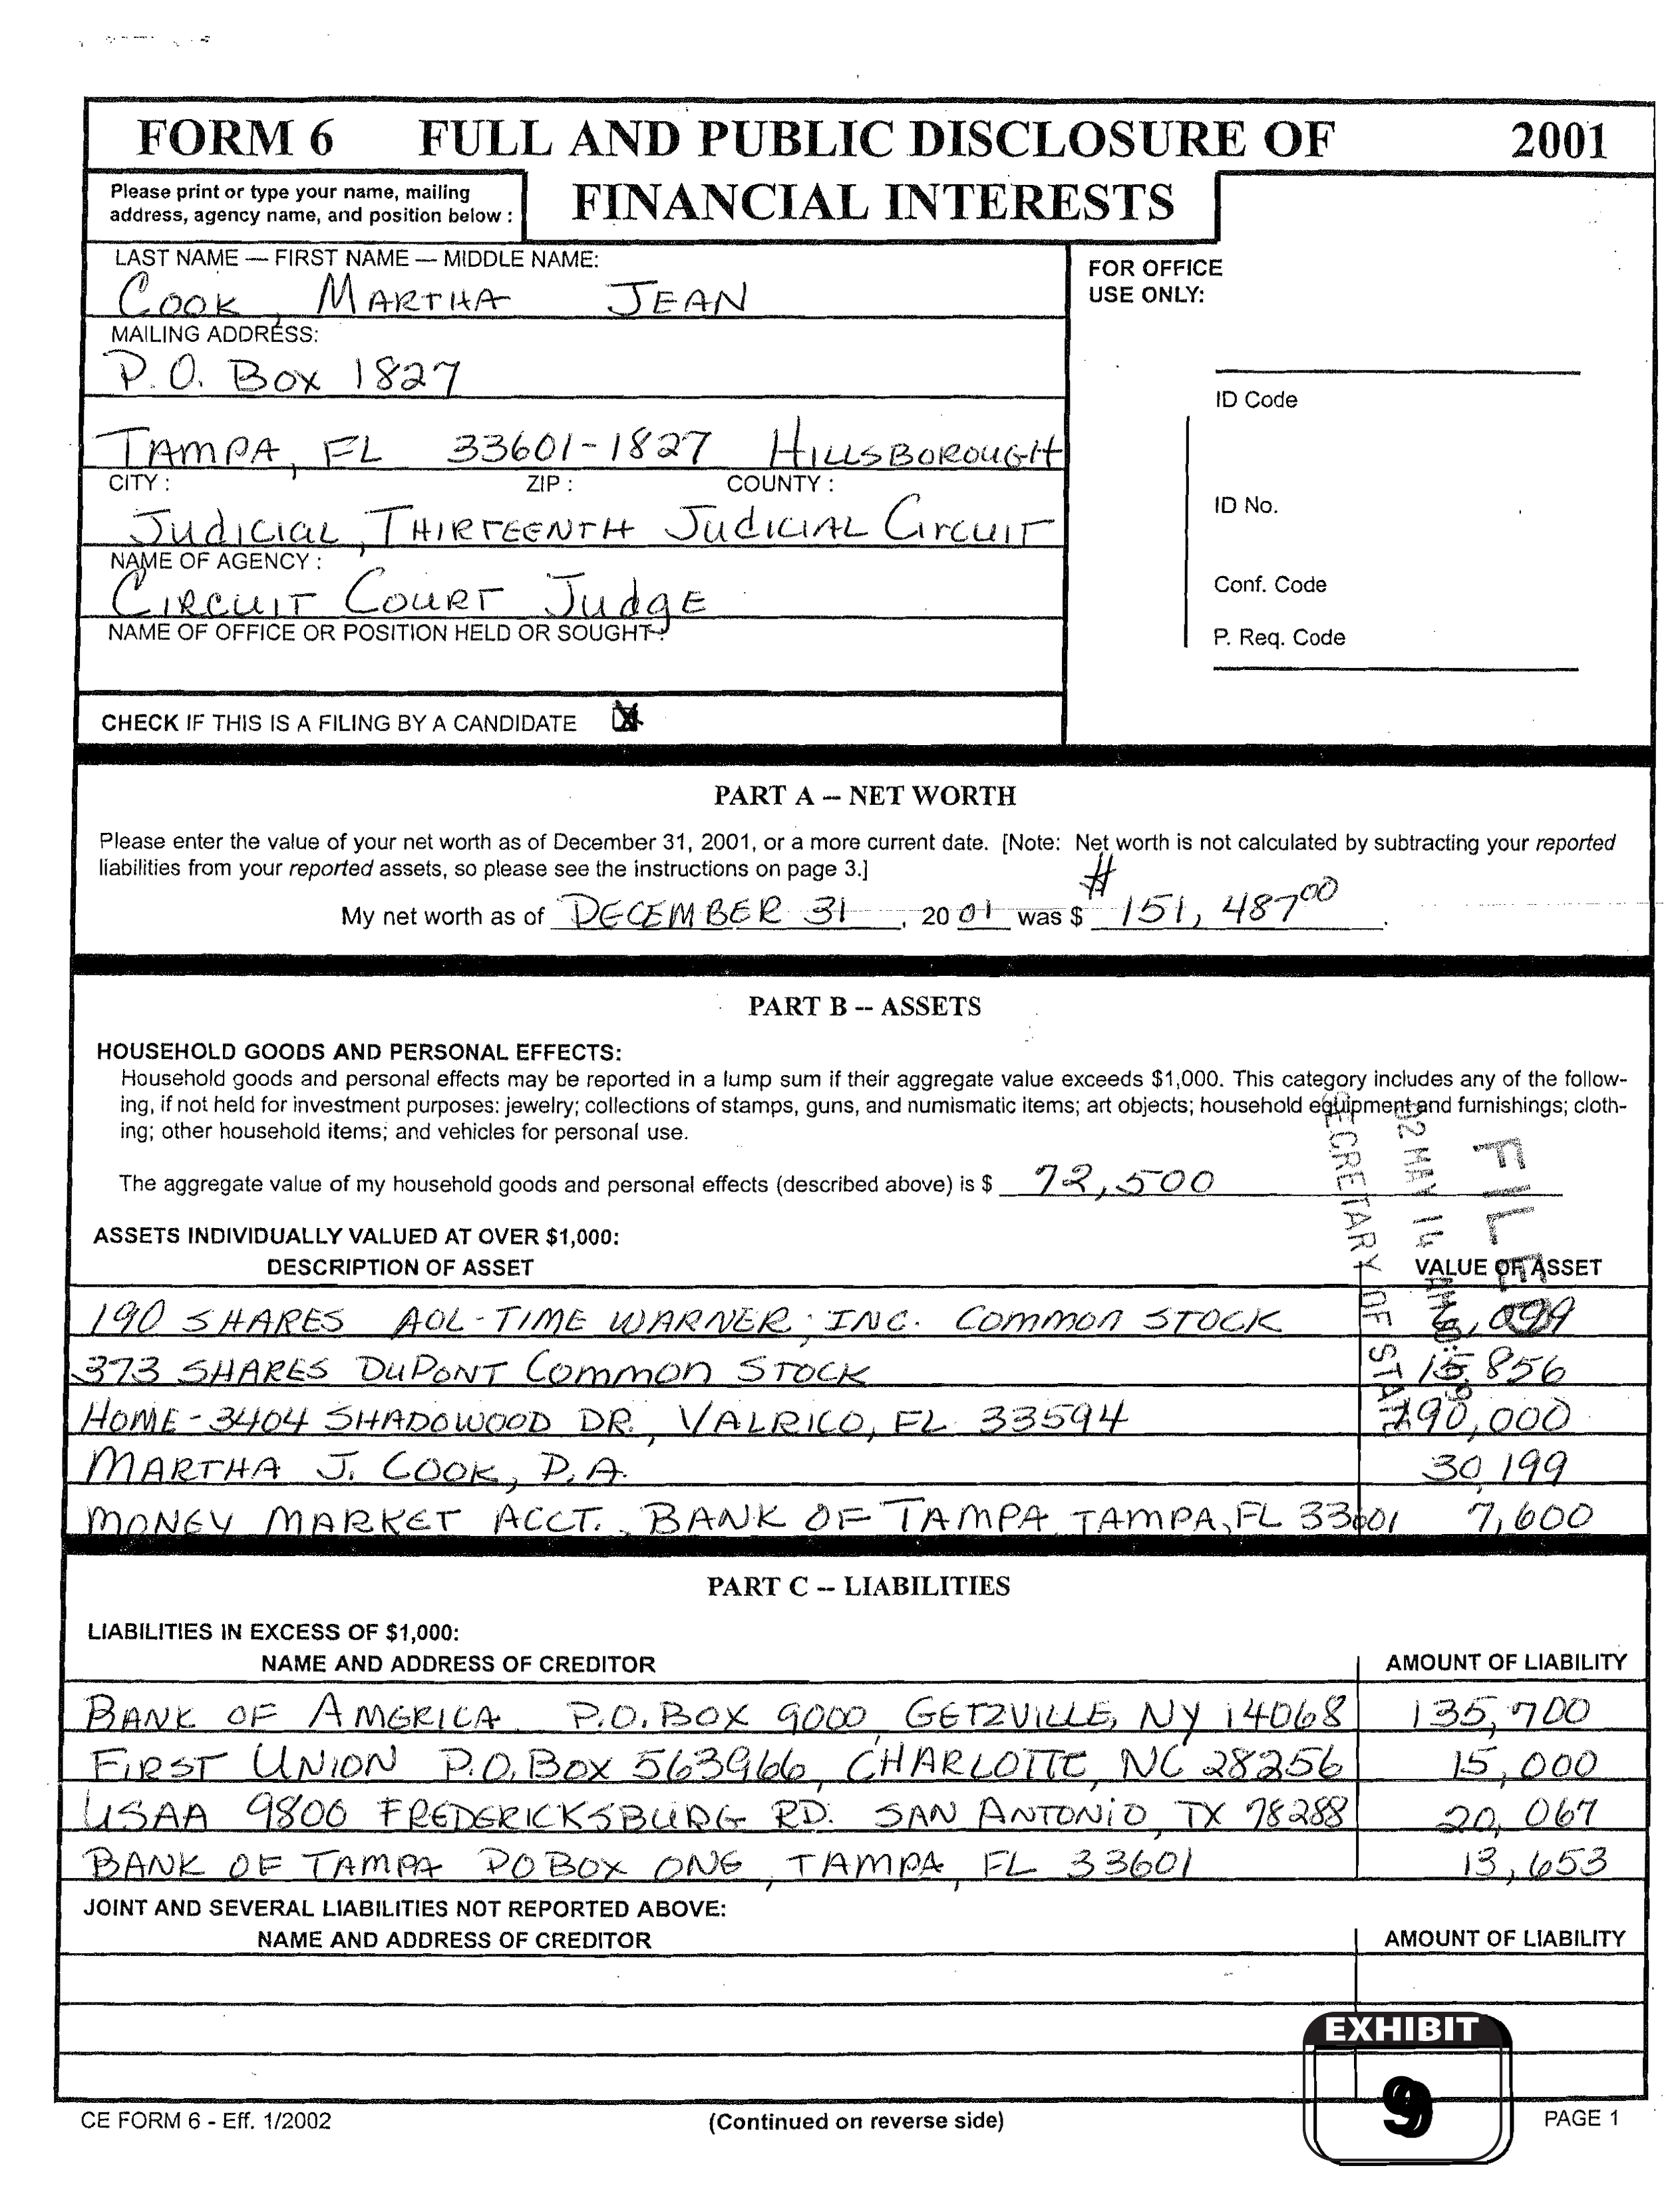 FORM 6 FULL AND PUBLIC DISCLOSURE OF 2001
Please print or type your name, mailing
address, agency name, and position below :
FINANCIAL INTERESTS
LAST NAME — FIRST NAME — MIDDLE NAME:
COOK, MARTHA JEAN
MAILING ADDRESS:
P.O. BOX 1827
TAMPA, FL 33601-1827 HILLSBOROUGH
CITY : ZIP : COUNTY :
JUDICIAL, THIRTEENTH JUDICIAL CIRCUIT
NAME OF AGENCY :
CIRCUIT COURT JUDGE
NAME OF OFFICE OR POSITION HELD OR SOUGHT :
CHECK IF THIS IS A FILING BY A CANDIDATE
FOR OFFICE
USE ONLY:
ID Code
ID No.
Conf. Code
P. Req. Code
PART A -- NET WORTH
Please enter the value of your net worth as of December 31, 2001, or a more current date. [Note: Net worth is not calculated by subtracting your reported
liabilities from your reported assets, so please see the instructions on page 3.]
My net worth as of DECEMBER 31, 20 01 was $ 151,487 00.
PART B -- ASSETS
HOUSEHOLD GOODS AND PERSONAL EFFECTS:
Household goods and personal effects may be reported in a lump sum if their aggregate value exceeds $1,000. This category includes any of the follow-
ing, if not held for investment purposes: jewelry; collections of stamps, guns, and numismatic items; art objects; household equipment and furnishings; cloth-
ing; other household items; and vehicles for personal use.
The aggregate value of my household goods and personal effects (described above) is $ 72,500
ASSETS INDIVIDUALLY VALUED AT OVER $1,000:
DESCRIPTION OF ASSET VALUE OF ASSET
190 SHARES AOL-TIME WARNER, INC. COMMON STOCK
373 SHARES DUPONT COMMON STOCK 15,856
HOME - 3404 SHADOWOOD DR., VALRICO, FL 33594 190,000
MARTHA J. COOK, P.A. 30,199
MONEY MARKET ACCT., BANK OF TAMPA TAMPA, FL 33601 7,600
FILED
SECRETARY OF STATE
PART C -- LIABILITIES
LIABILITIES IN EXCESS OF $1,000:
NAME AND ADDRESS OF CREDITOR AMOUNT OF LIABILITY
BANK OF AMERICA P.O. BOX 9000, GETZVILLE, NY 14068 135,700
FIRST UNION P.O. BOX 563966, CHARLOTTE, NC 28256 15,000
USAA 9800 FREDERICKSBURG RD. SAN ANTONIO, TX 78288 20,067
BANK OF TAMPA PO BOX ONE, TAMPA, FL 33601 13,653
JOINT AND SEVERAL LIABILITIES NOT REPORTED ABOVE:
NAME AND ADDRESS OF CREDITOR AMOUNT OF LIABILITY
EXHIBIT
9
CE FORM 6 - Eff. 1/2002 (Continued on reverse side) PAGE 1